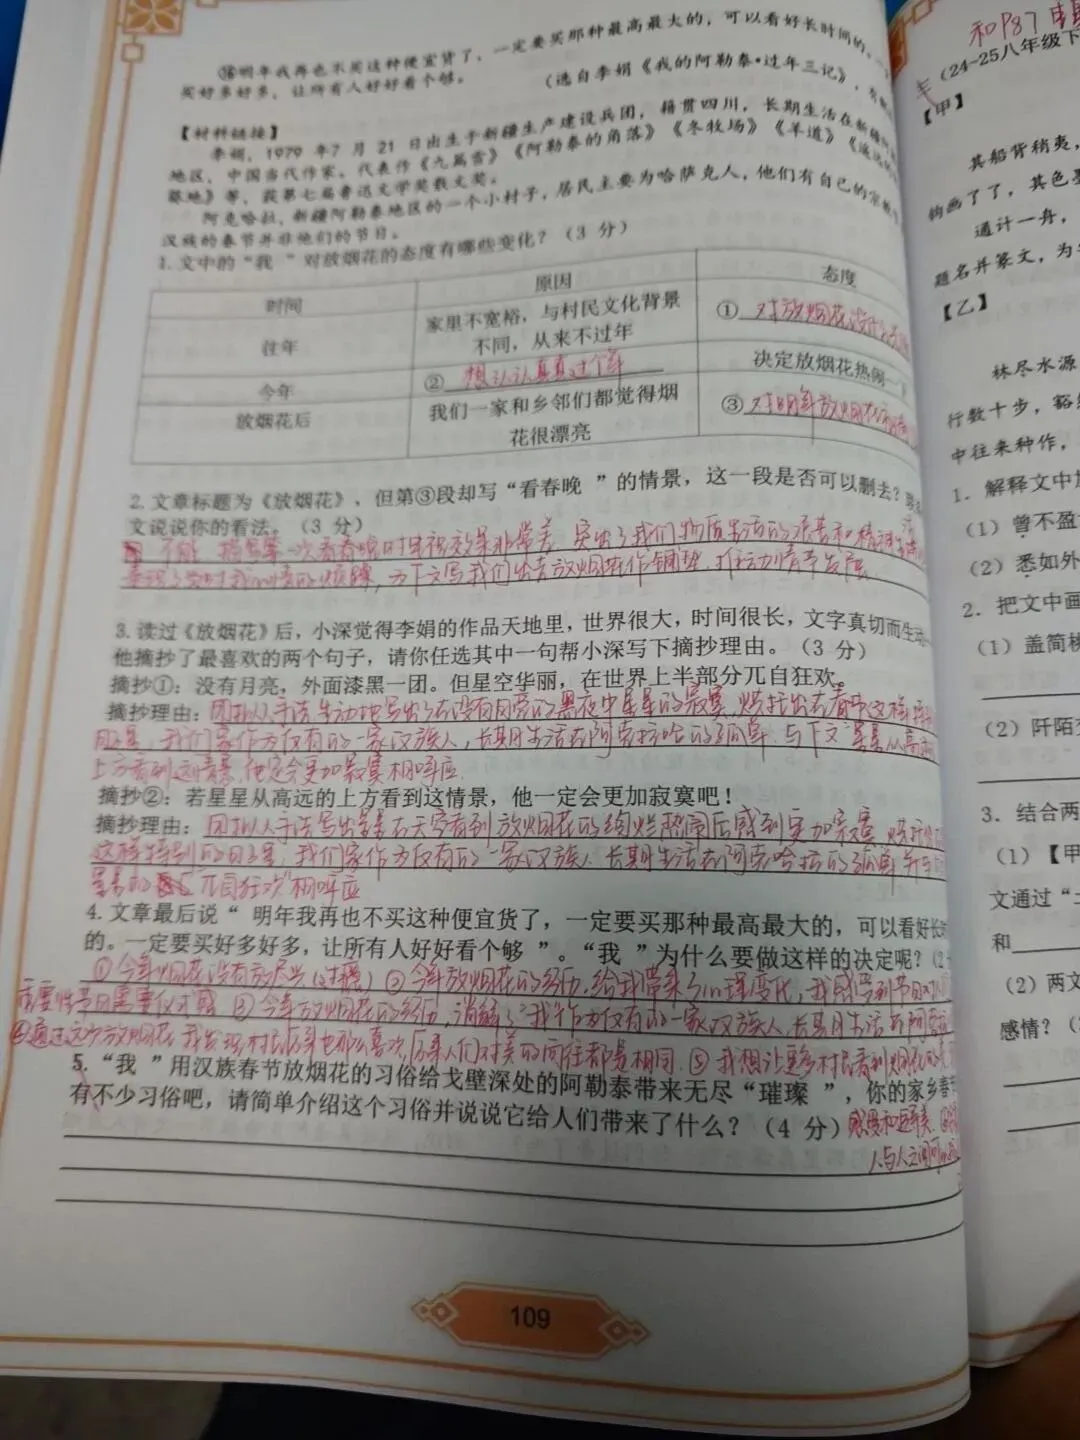 ⑯明年我再也不买这种便宜货了，一定要买那种最高最大的，可以看好长时间的。一
买好多好多，让所有人好好看个够。
（选自李娟《我的阿勒泰·过年三记》，有删
【材料链接】
李娟，1979 年7 月 21 日出生于新疆生产建设兵团，籍贯四川，长期生活在新疆阿
地区，中国当代作家。代表作《九篇雪》《阿勒泰的角落》《冬牧场》《羊道》《遥远的
葵地》等，获第七届鲁迅文学奖散文奖。
阿克哈拉，新疆阿勒泰地区的一个小村子，居民主要为哈萨克人，他们有自己的宗教
汉族的春节并非他们的节日。
1.文中的“我 ”对放烟花的态度有哪些变化？（3 分）
时间 原因 态度
往年 家里不宽裕，与村民文化背景不同，从来不过年 ① 对放烟花没什么
今年 ② 想认认真真过个年 决定放烟花热闹一下
放烟花后 我们一家和乡邻们都觉得烟花很漂亮 ③ 对明年放烟花
2.文章标题为《放烟花》，但第③段却写“看春晚 ”的情景，这一段是否可以删去？
文说说你的看法。（3 分）
不能 描写第一次看春晚时电视效果非常差，突出了我们物质生活的艰苦和精神生
，为下文写我们出去放烟花作铺垫，推动情节发展
3.读过《放烟花》后，小深觉得李娟的作品天地里，世界很大，时间很长，文字真切而生动
他摘抄了最喜欢的两个句子，请你任选其中一句帮小深写下摘抄理由。（3 分）
摘抄①：没有月亮，外面漆黑一团。但星空华丽，在世界上半部分兀自狂欢。
摘抄理由：用拟人手法生动地写出了在没有月亮的黑夜中星星的寂寞，烘托出在春节这样特别
的日子里，我们家作为仅有的一家汉族人，长期生活在阿克哈拉的孤单，与下文“星星从高远的
上方看到这情景，他一定会更加寂寞”相呼应
摘抄②：若星星从高远的上方看到这情景，他一定会更加寂寞吧！
摘抄理由：用拟人手法写出星星在天穹看到放烟花的绚烂热闹后感到更加寂寞，烘托
这样特别的日子里，我们家作为仅有的一家汉族人，长期生活在阿克哈拉的孤单，并与
“兀自狂欢”相呼应
4.文章最后说“ 明年我再也不买这种便宜货了，一定要买那种最高最大的，可以看好长
的。一定要买好多好多，让所有人好好看个够 ”。“我 ”为什么要做这样的决定呢？（2
①今年烟花没有放尽兴 ②今年放烟花的经历，给我带来了心理变化，我感受到节日
需要仪式感 ③今年放烟花的经历，消解了“我”作为仅有的一家汉族人，长期生活在阿克
④通过这次放烟花，我发现村民原来也那么喜欢，原来人们对美的向往都是相同，⑤我想让更多村民看到烟花的
5.“我 ”用汉族春节放烟花的习俗给戈壁深处的阿勒泰带来无尽“璀璨 ”，你的家乡春节
有不少习俗吧，请简单介绍这个习俗并说说它给人们带来了什么？（4 分）
人与人之间
109
和P87
（24-25八年级下
【甲】
其船背稍夷，
钩画了了，其色墨
通计一舟，
题名并篆文，为
【乙】
林尽水源
行数十步，豁
中往来种作，
1．解释文中加
（1）曾不盈
（2）悉如外
2．把文中画
（1）盖简桃
（2）阡陌交
3．结合两
（1）【甲
文通过“
和
（2）两文
感情？（